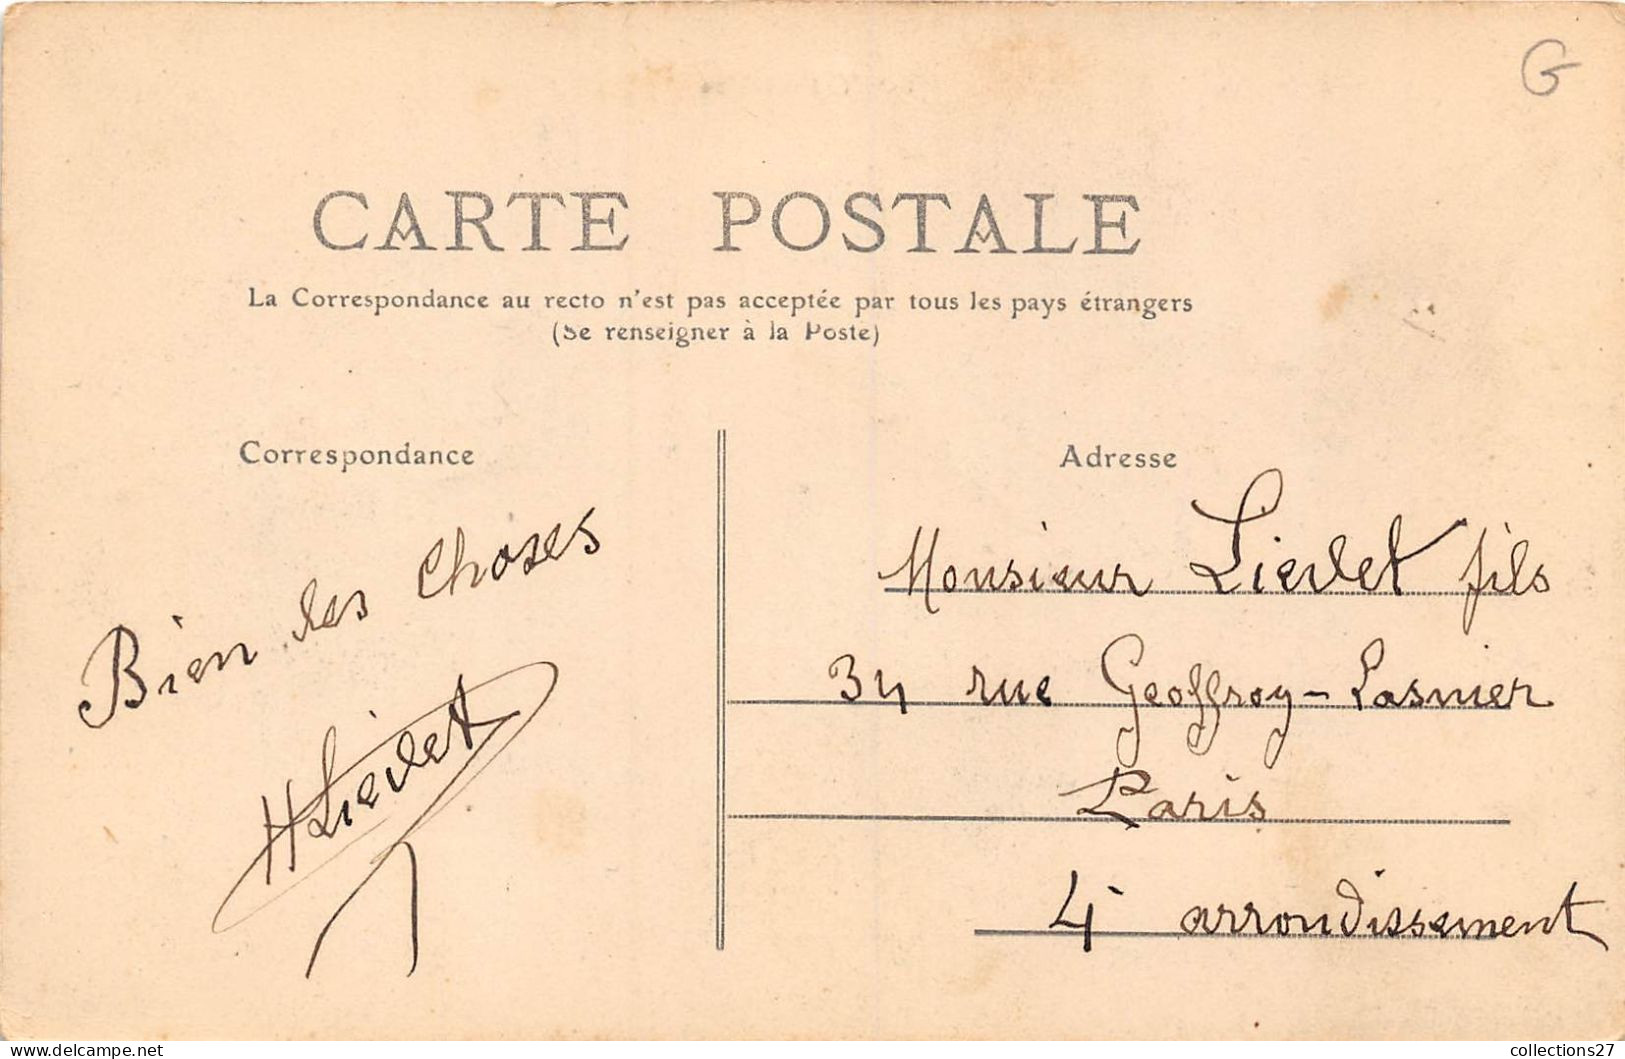 G
CARTE POSTALE
La Correspondance au recto n'est pas acceptée par tous les pays étrangers
(Se renseigner à la Poste)
Correspondance
Bien des choses
HLievlet
Adresse
Monsieur Lievlet fils
34 rue Geoffroy-Lasnier
Paris
4e arrondissement
collections27